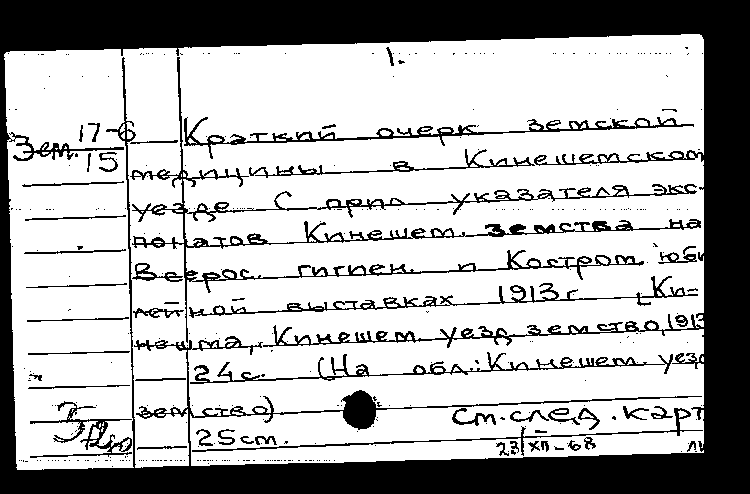 1.
17-6 Краткий очерк земской
Зем. 15
медицины в Кинешемском
уезде С прил указателя экс-
понатов Кинешем. земства на
Всерос. гигиен. и Костром. юби
лейной выставках 1913 г [Ки-
нешма, Кинешем уезд земство, 1913
24 с. (На обл.: Кинешем. уезд
земство)
См. след. карт
25 см.
23/XII-68